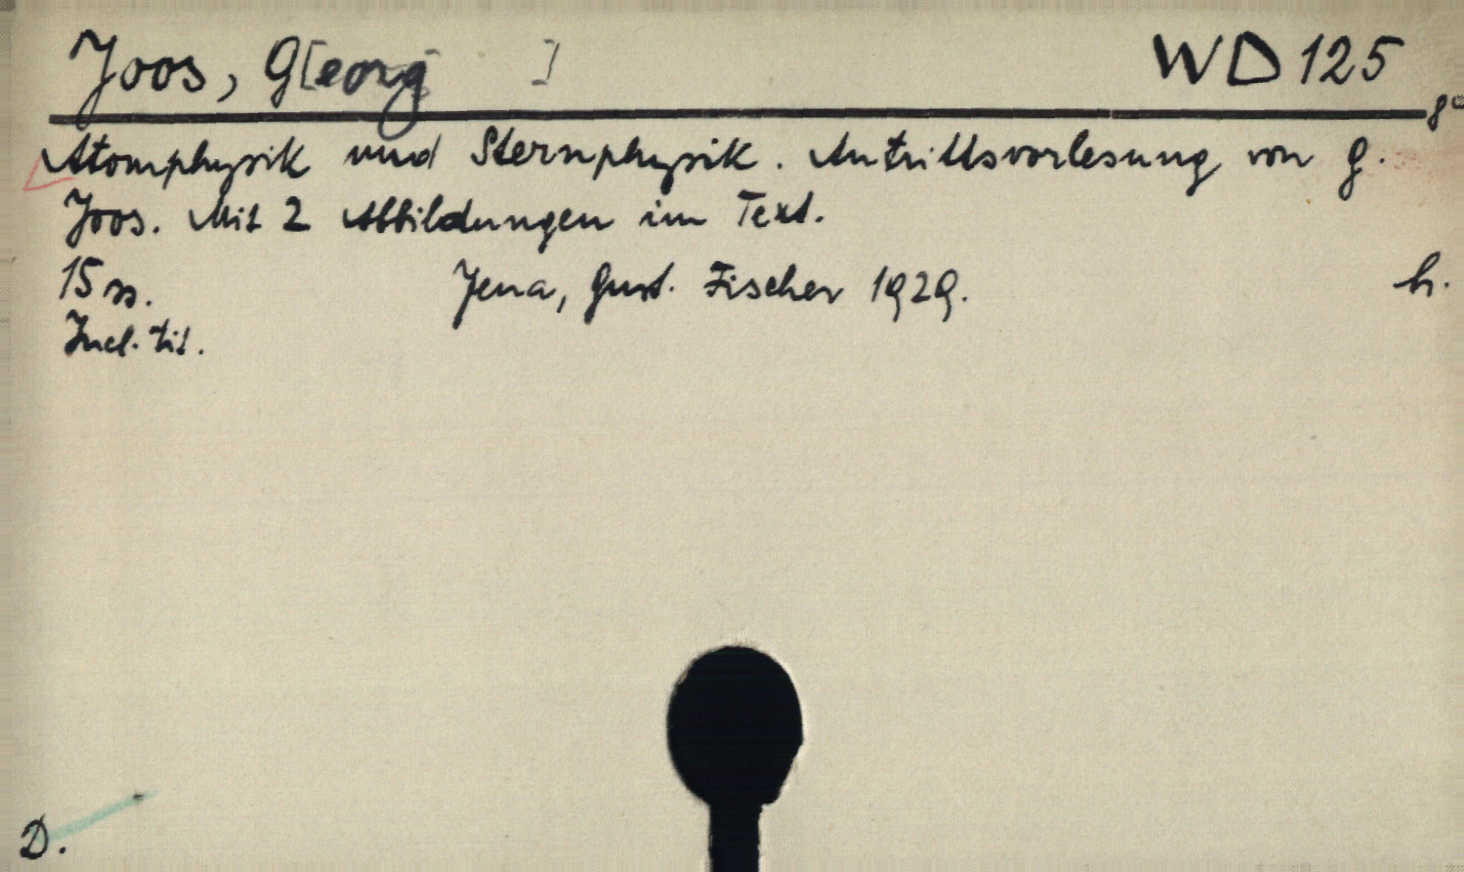 Joos, G[eorg ]
WD 125
8°
Atomphysik und Sternphysik. Antrittsvorlesung von G.
Joos. Mit 2 Abbildungen im Text.
15 ss. Jena, Gust. Fischer 1929. h.
Incl. tit.
D.